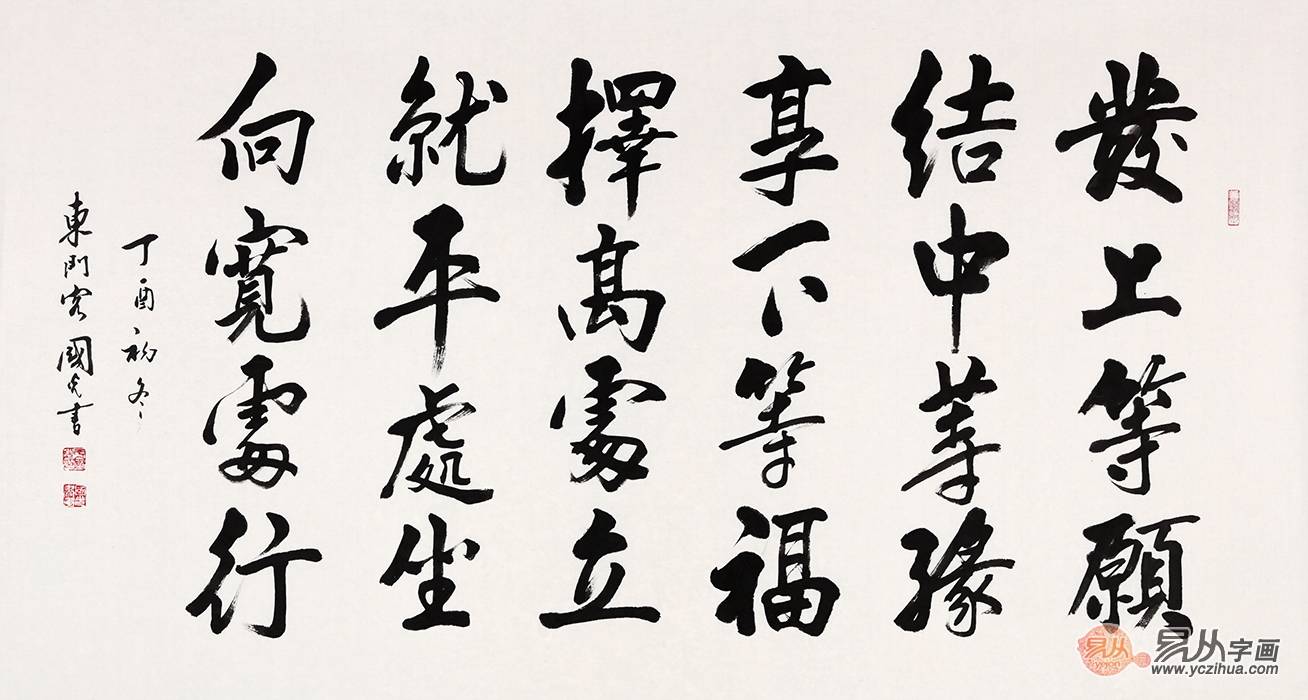 發上等願
結中等緣
享下等福
擇高處立
就平處坐
向寬處行
丁酉初冬
東門客國光書
易从
yicong
易从字画
www.yczihua.com